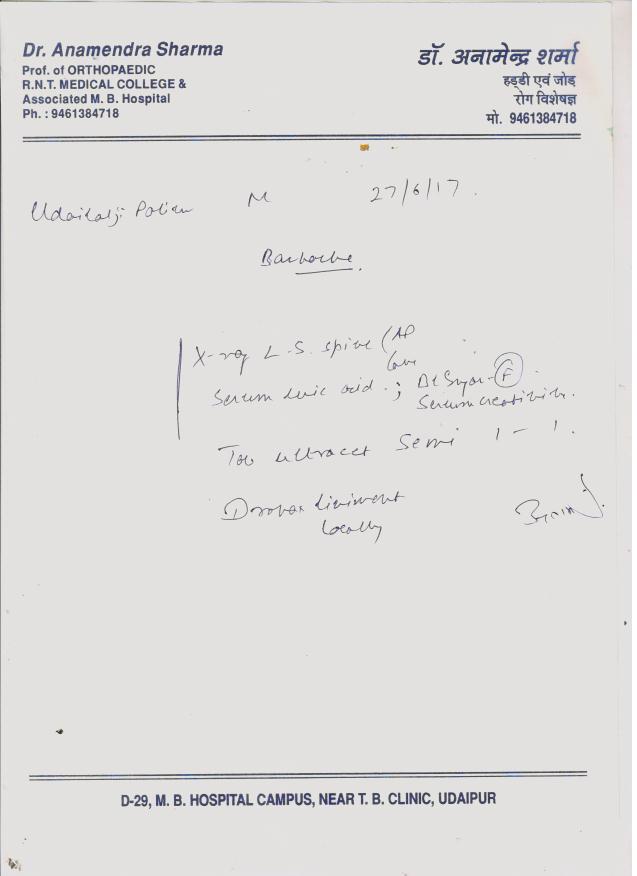 Dr. Anamendra Sharma
Prof. of ORTHOPAEDIC
R.N.T. MEDICAL COLLEGE &
Associated M. B. Hospital
Ph. : 9461384718
डॉ. अनामेन्द्र शर्मा
हड्डी एवं जोड़
रोग विशेषज्ञ
मो. 9461384718
M 27/6/17.
Backache.
X-ray L.S. Spine (AP
Serum Uric acid ; Bl Sugar - F
Serum creatinine.
Tab Ultracet Semi 1 - 1.
liniment
locally
D-29, M. B. HOSPITAL CAMPUS, NEAR T. B. CLINIC, UDAIPUR